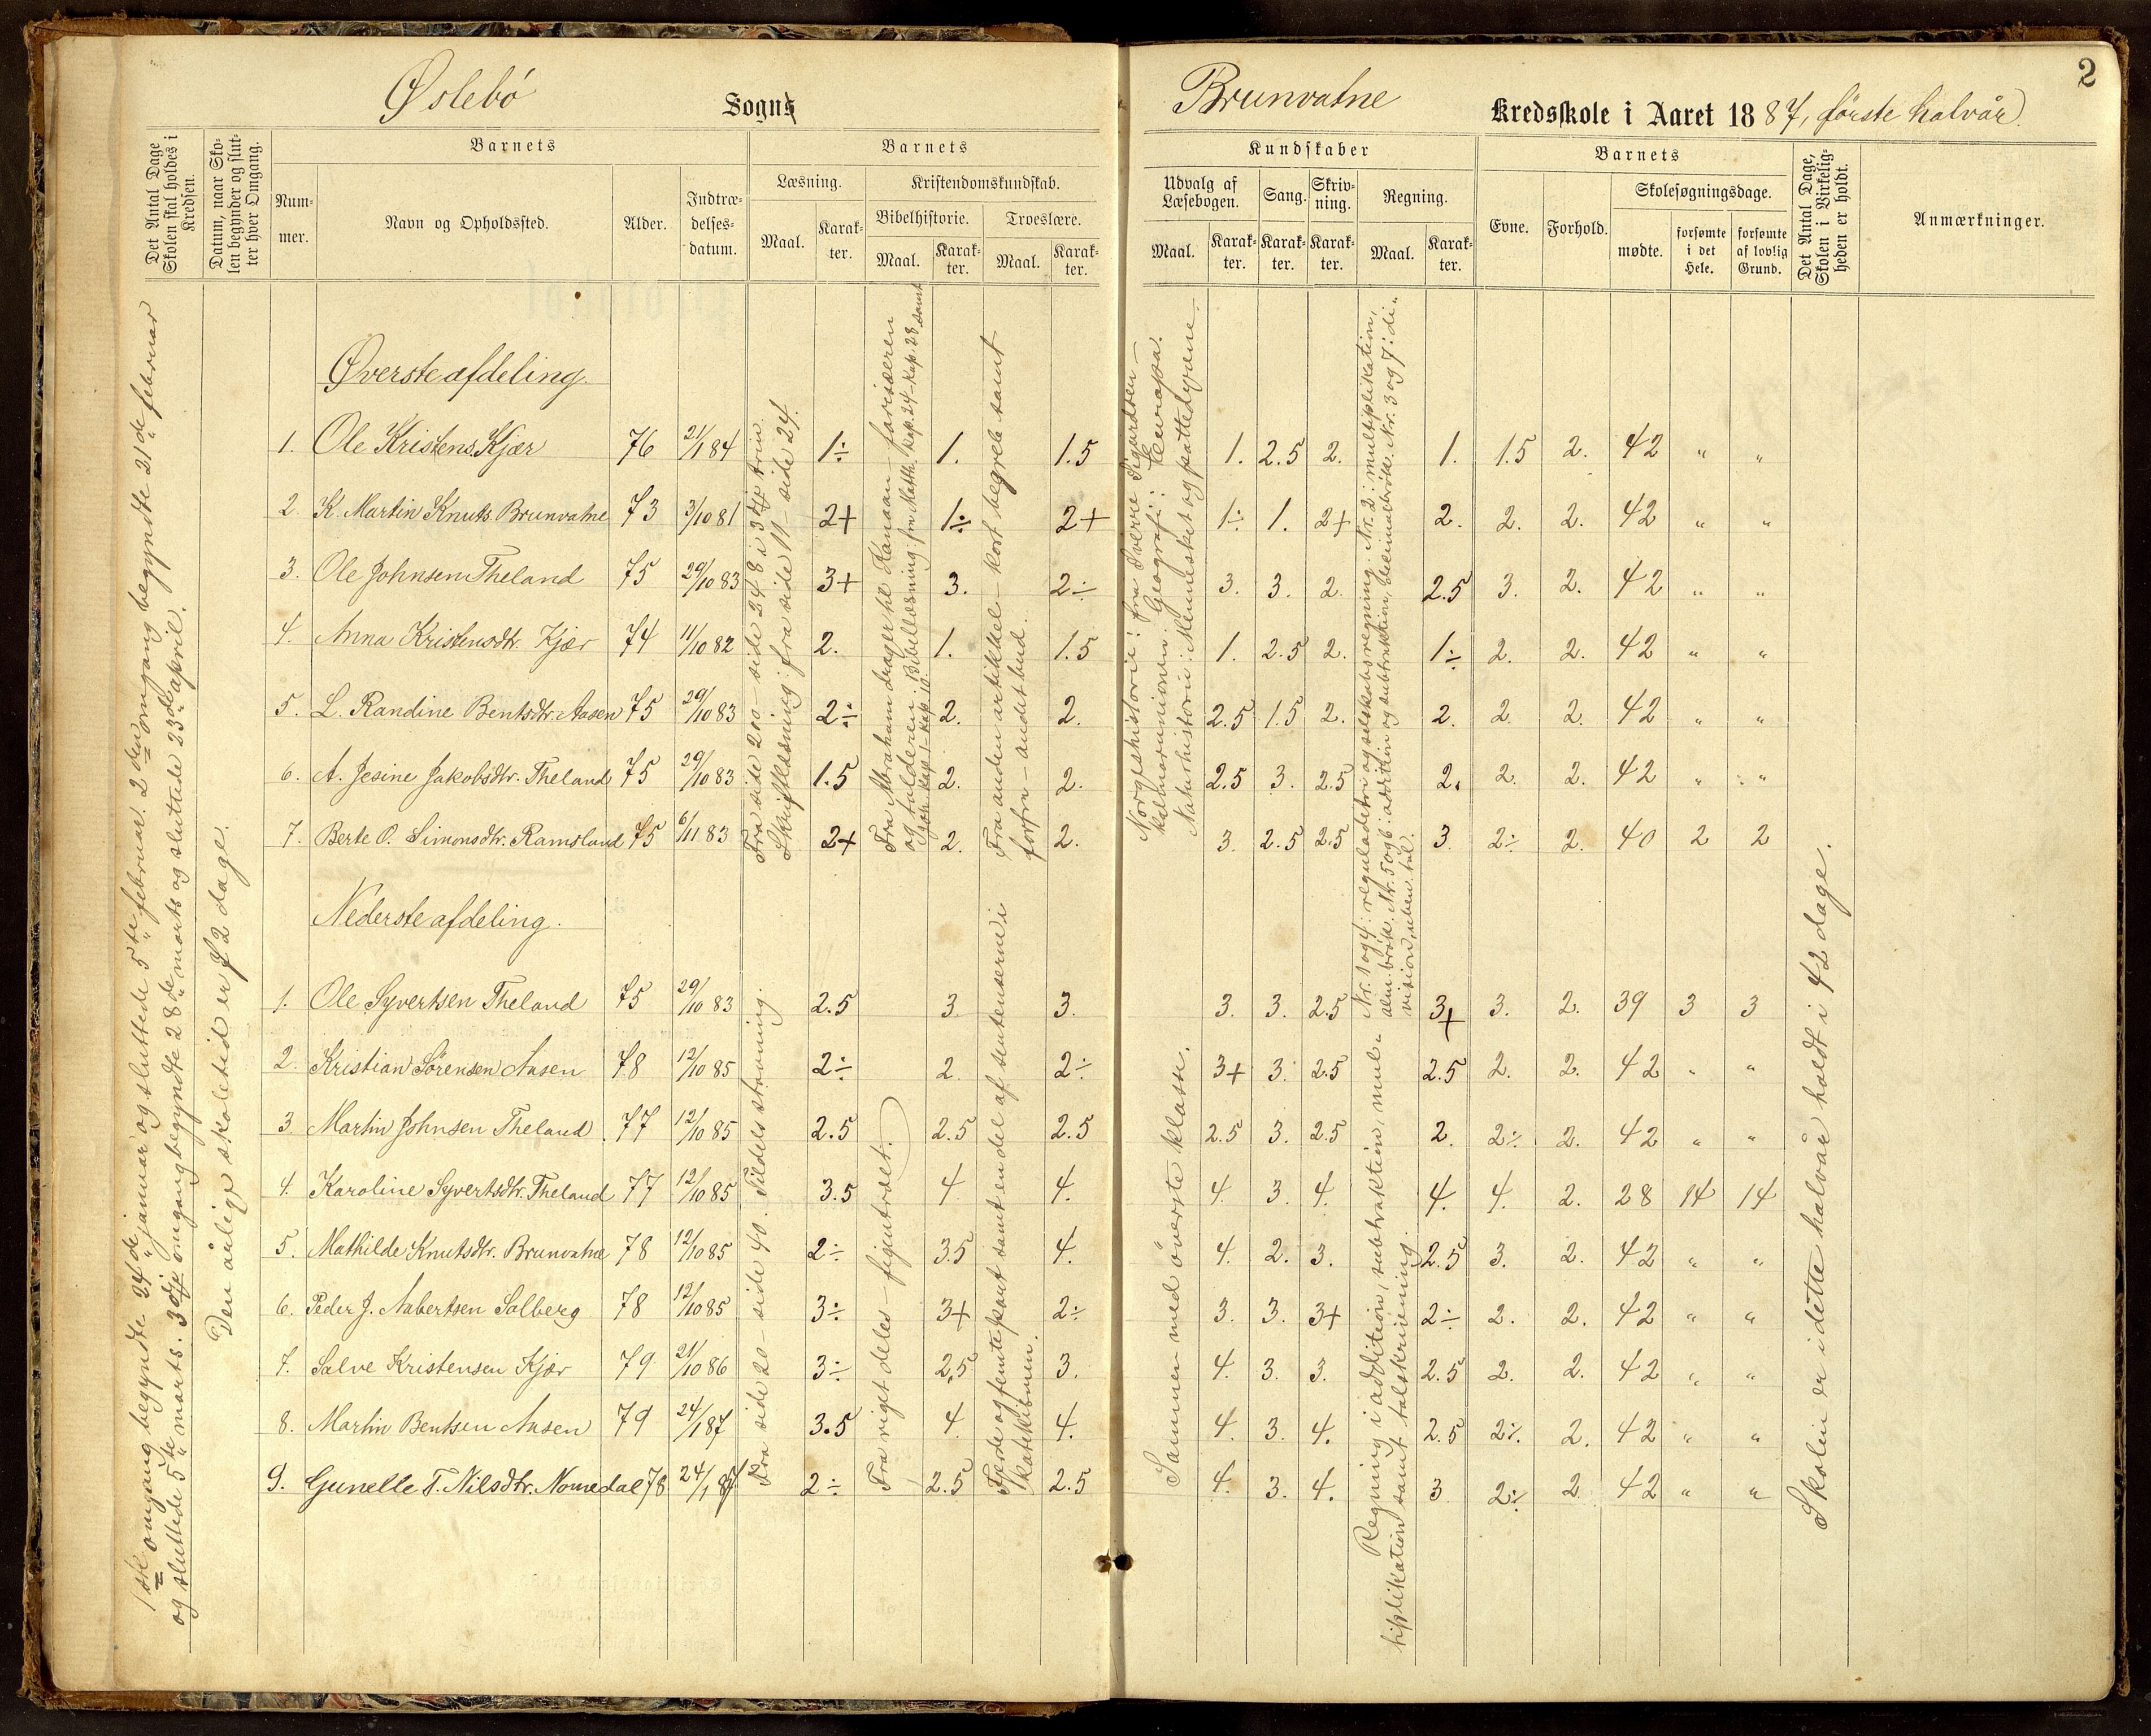 Øslebö Sogns
Brunvatne Kredsskole i Aaret 1887, förste halvår.
2
Det Antal Dage Skolen skal holdes i Kredsen.
Datum, naar Skolen begynder og slutter hver Omgang.
Barnets
Nummer.
Navn og Opholdssted.
Alder.
Indtrædelsesdatum.
Barnets
Læsning.
Maal.
Karakter.
Kristendomskundskab.
Bibelhistorie.
Maal.
Karakter.
Troeslære.
Maal.
Karakter.
Kundskaber
Udvalg af Læsebogen.
Maal.
Karakter.
Sang.
Karakter.
Skrivning.
Karakter.
Regning.
Maal.
Karakter.
Barnets
Evne.
Forhold.
Skolesøgningsdage.
mødte.
forsømte i det Hele.
forsømte af lovlig Grund.
Det Antal Dage, Skolen i Virkeligheden er holdt.
Anmærkninger.
1ste omgang begyndte 24de januar og sluttede 5te februar. 2den omgang begyndte 21de februar
og sluttede 5te marts. 3dje omgang begyndte 28de marts og sluttede 23de april.
Den årlige skoletid er 72 dage.
Øverste afdeling.
1. Ole Kristens. Kjær 76 21/1 84 1÷ 1. 1.5 1. 2.5 2. 1. 1.5 2. 42 " "
2. K. Martin Knuts. Brunvatne 73 3/10 81 2+ 1÷ 2+ 1÷ 1. 2+ 2. 2. 2. 42 " "
3. Ole Johnsen Theland 75 29/10 83 3+ 3. 2÷ 3. 3. 2. 2.5 3. 2. 42 " "
4. Anna Kristensdtr. Kjær 74 11/10 82 2. 1. 1.5 1. 2.5 2. 1÷ 2. 2. 42 " "
5. L. Randine Bentsdtr. Aasen 75 29/10 83 2÷ 2. 2. 2.5 1.5 2. 2. 2. 2. 42 " "
6. A. Jesine Jakobsdtr. Theland 75 29/10 83 1.5 2. 2. 2.5 3. 2.5 2. 2. 2. 42 " "
7. Berte O. Simonsdtr. Ramsland 75 6/11 83 2+ 2. 2. 3. 2.5 2.5 3. 2÷ 2. 40 2 2
Fra side 200 – side 248 i 3dje trin.
Skriftlæsning: fra side 11 – side 24.
Fra Abraham drager til Kanaan – farisæeren
og tolderen. Bibellæsning: fra Matth. kap. 24 – kap. 28 samt
kap. 1 – kap. 10.
Fra anden artikkel – kort begreb samt
forfra – andet bud.
Norgeshistorie: fra Sverre Sigurdsen –
kalmarunionen. Geografi: Europa.
Naturhistorie: Mennesket og pattedyrene.
Nr. 1 og 4: reguladetri og selskabsregning. Nr. 2: multiplikation,
alm. brök. Nr. 5 og 6: addition og subtraktion, decimalbrök. Nr. 3 og 7: division, uben. tal.
Nederste afdeling.
1. Ole Syvertsen Theland 75 29/10 83 2.5 3 3. 3. 3. 2.5 3+ 3. 2. 39 3 3
2. Kristian Sörensen Aasen 78 12/10 85 2÷ 2. 2÷ 3+ 3. 2.5 2.5 2. 2. 42 " "
3. Martin Johnsen Theland 77 12/10 85 2.5 2.5 2.5 2.5 3. 2.5 2. 2÷ 2. 42 " "
4. Karoline Syvertsdtr. Theland 77 12/10 85 3.5 4. 4. 4. 3. 4. 4. 4. 2. 28 14 14
5. Mathilde Knutsdtr. Brunvatne 78 12/10 85 2÷ 3.5 4. 4. 2. 3. 2.5 3. 2. 42 " "
6. Peder J. Aabertsen Solberg 78 12/10 85 3÷ 3+ 2÷ 3. 3. 3+ 2÷ 2. 2. 42 " "
7. Salve Kristensen Kjær 79 21/10 86 3÷ 2.5 3. 4. 3. 3. 2.5 2. 2. 42 " "
8. Martin Bentsen Aasen 79 24/1 87 3.5 4. 4. 4. 3. 4. 2.5 2÷ 2. 42 " "
9. Gunelle T. Nilsdtr. Nomedal 78 24/1 87 2÷ 2.5 2.5 4. 3. 4. 3 2÷ 2 42 " "
Fra side 20 – side 40. Tildels stavning.
Fra riget deles – figentræet.
Fjerde og femte part samt en del af sentenserne i
katekismen.
Sammen med överste klasse.
Regning i addition, subtraktion, multiplikation samt talskrivning.
Skolen er i dette halvår holdt i 42 dage.